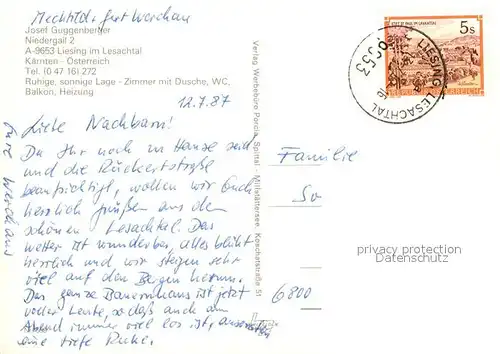 Mechtild + Gert Werchau
Josef Guggenberger
Niedergail 2
A-9653 Liesing im Lesachtal
Kärnten - Österreich
Tel. (0 47 16) 272
Ruhige, sonnige Lage - Zimmer mit Dusche, WC,
Balkon, Heizung
12.7.87
Liebe Nachbarn!
Da Ihr noch im Hause seid
und die Rückertstraße
beaufsichtigt, wollen wir Euch
herzlich grüßen aus dem
schönen Lesachtal. Das
Wetter ist wunderbar, alles blüht
herrlich und wir steigen sehr
viel auf den Bergen herum.
Das ganze Bauernhaus ist jetzt
voller Leute, so daß auch am
Abend immer viel los ist, ansonsten
eine tiefe Ruhe.
Eure Werchaus
Verlag Werbebüro Spittal - Millstättersee, Koschatstraße 51
5s
STIFT ST. PAUL IM LAVANTTAL
LIESING LESACHTAL
9653
Familie
6800
privacy protection
Datenschutz